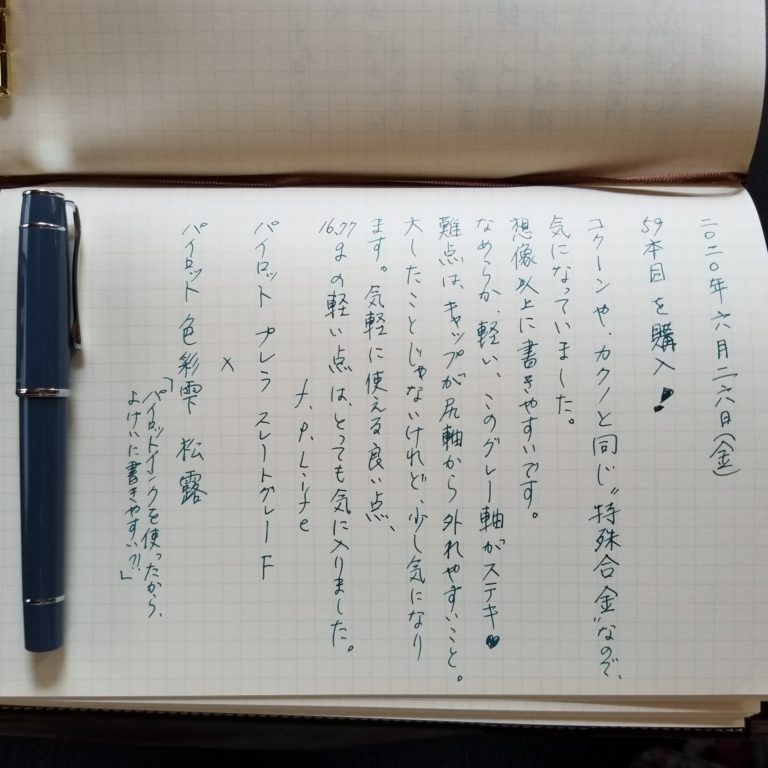 二〇二〇年六月二六日(金)
59本目を購入!
コクーンや、カクノと同じ“特殊合金”なので、
気になっていました。
想像以上に書きやすいです。
なめらか、軽い、このグレー軸がステキ♥
難点は、キャップが尻軸から外れやすいこと。
大したことじゃないけれど、少し気になり
ます。気軽に使える良い点、
16.77gの軽い点は、とっても気に入りました。
f.p.Life
パイロット プレラ スレートグレー F
×
パイロット 色彩雫 松露
「パイロットインクを使ったから、
よけいに書きやすい?!」